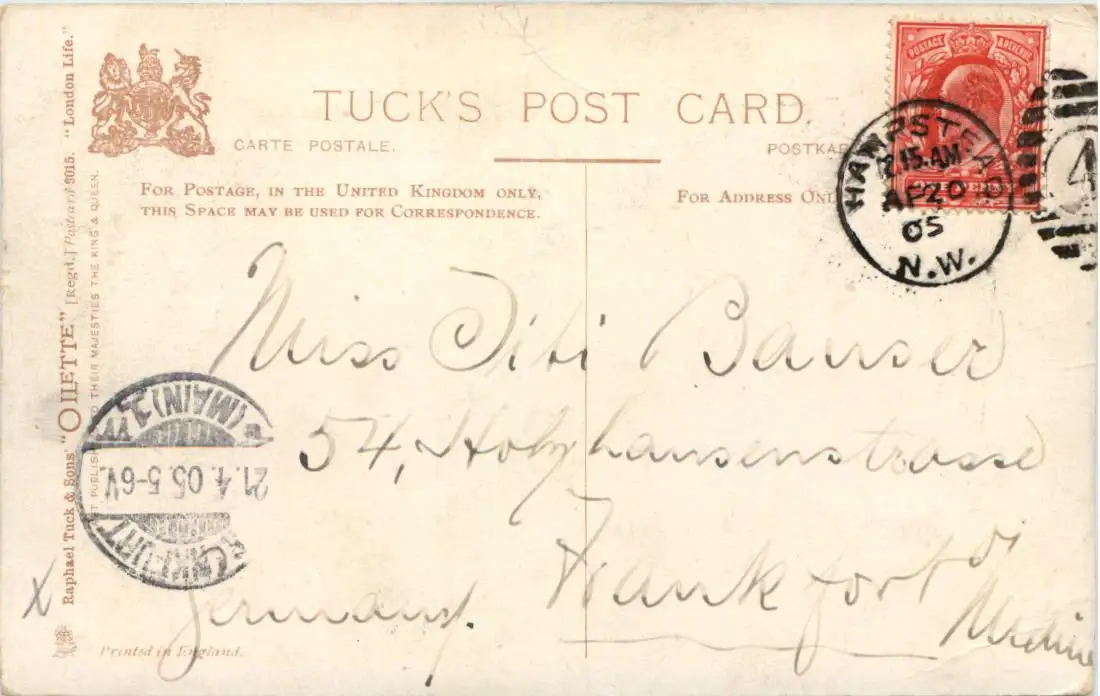 TUCK'S POST CARD.
CARTE POSTALE.
FOR POSTAGE, IN THE UNITED KINGDOM ONLY,
THIS SPACE MAY BE USED FOR CORRESPONDENCE.
FOR ADDRESS ONL
POSTAGE & REVENUE
PENNY
HAMPSTEAD
12.15.AM
AP20
05
N.W.
4
Miss Titi Banser
54, Holzhausenstrasse
Frankfort
Germany.
(MAIN) 1
21.4.05.5-6V.
Raphael Tuck & Sons' "OILETTE" [Regd.] Postcard 9015. "London Life."
TO THEIR MAJESTIES THE KING & QUEEN.
Printed in England.
X